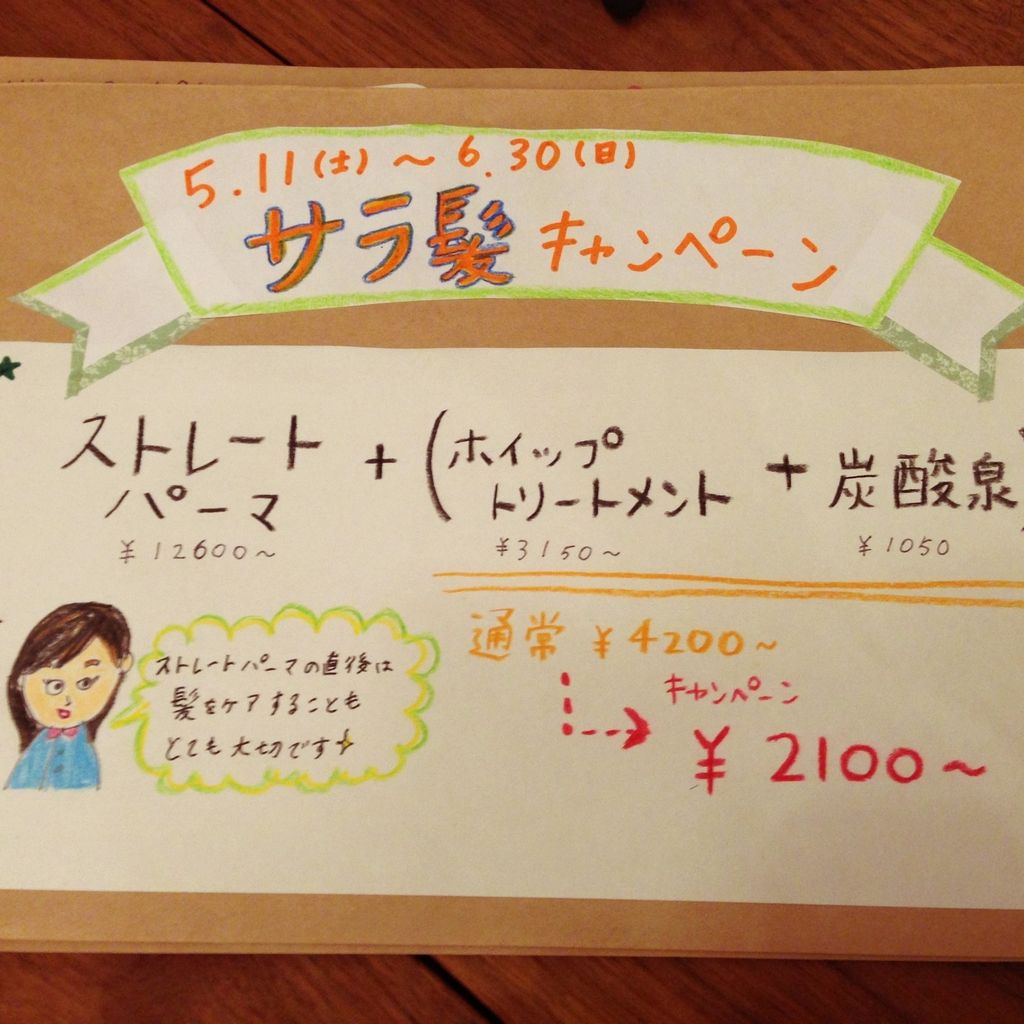 5.11(土)〜6.30(日)
サラ髪キャンペーン
ストレート
パーマ
¥12600〜
+
(ホイップ
トリートメント
¥3150〜
+
炭酸泉)
¥1050
ストレートパーマの直後は
髪をケアすることも
とても大切です
通常 ¥4200〜
キャンペーン
¥2100〜